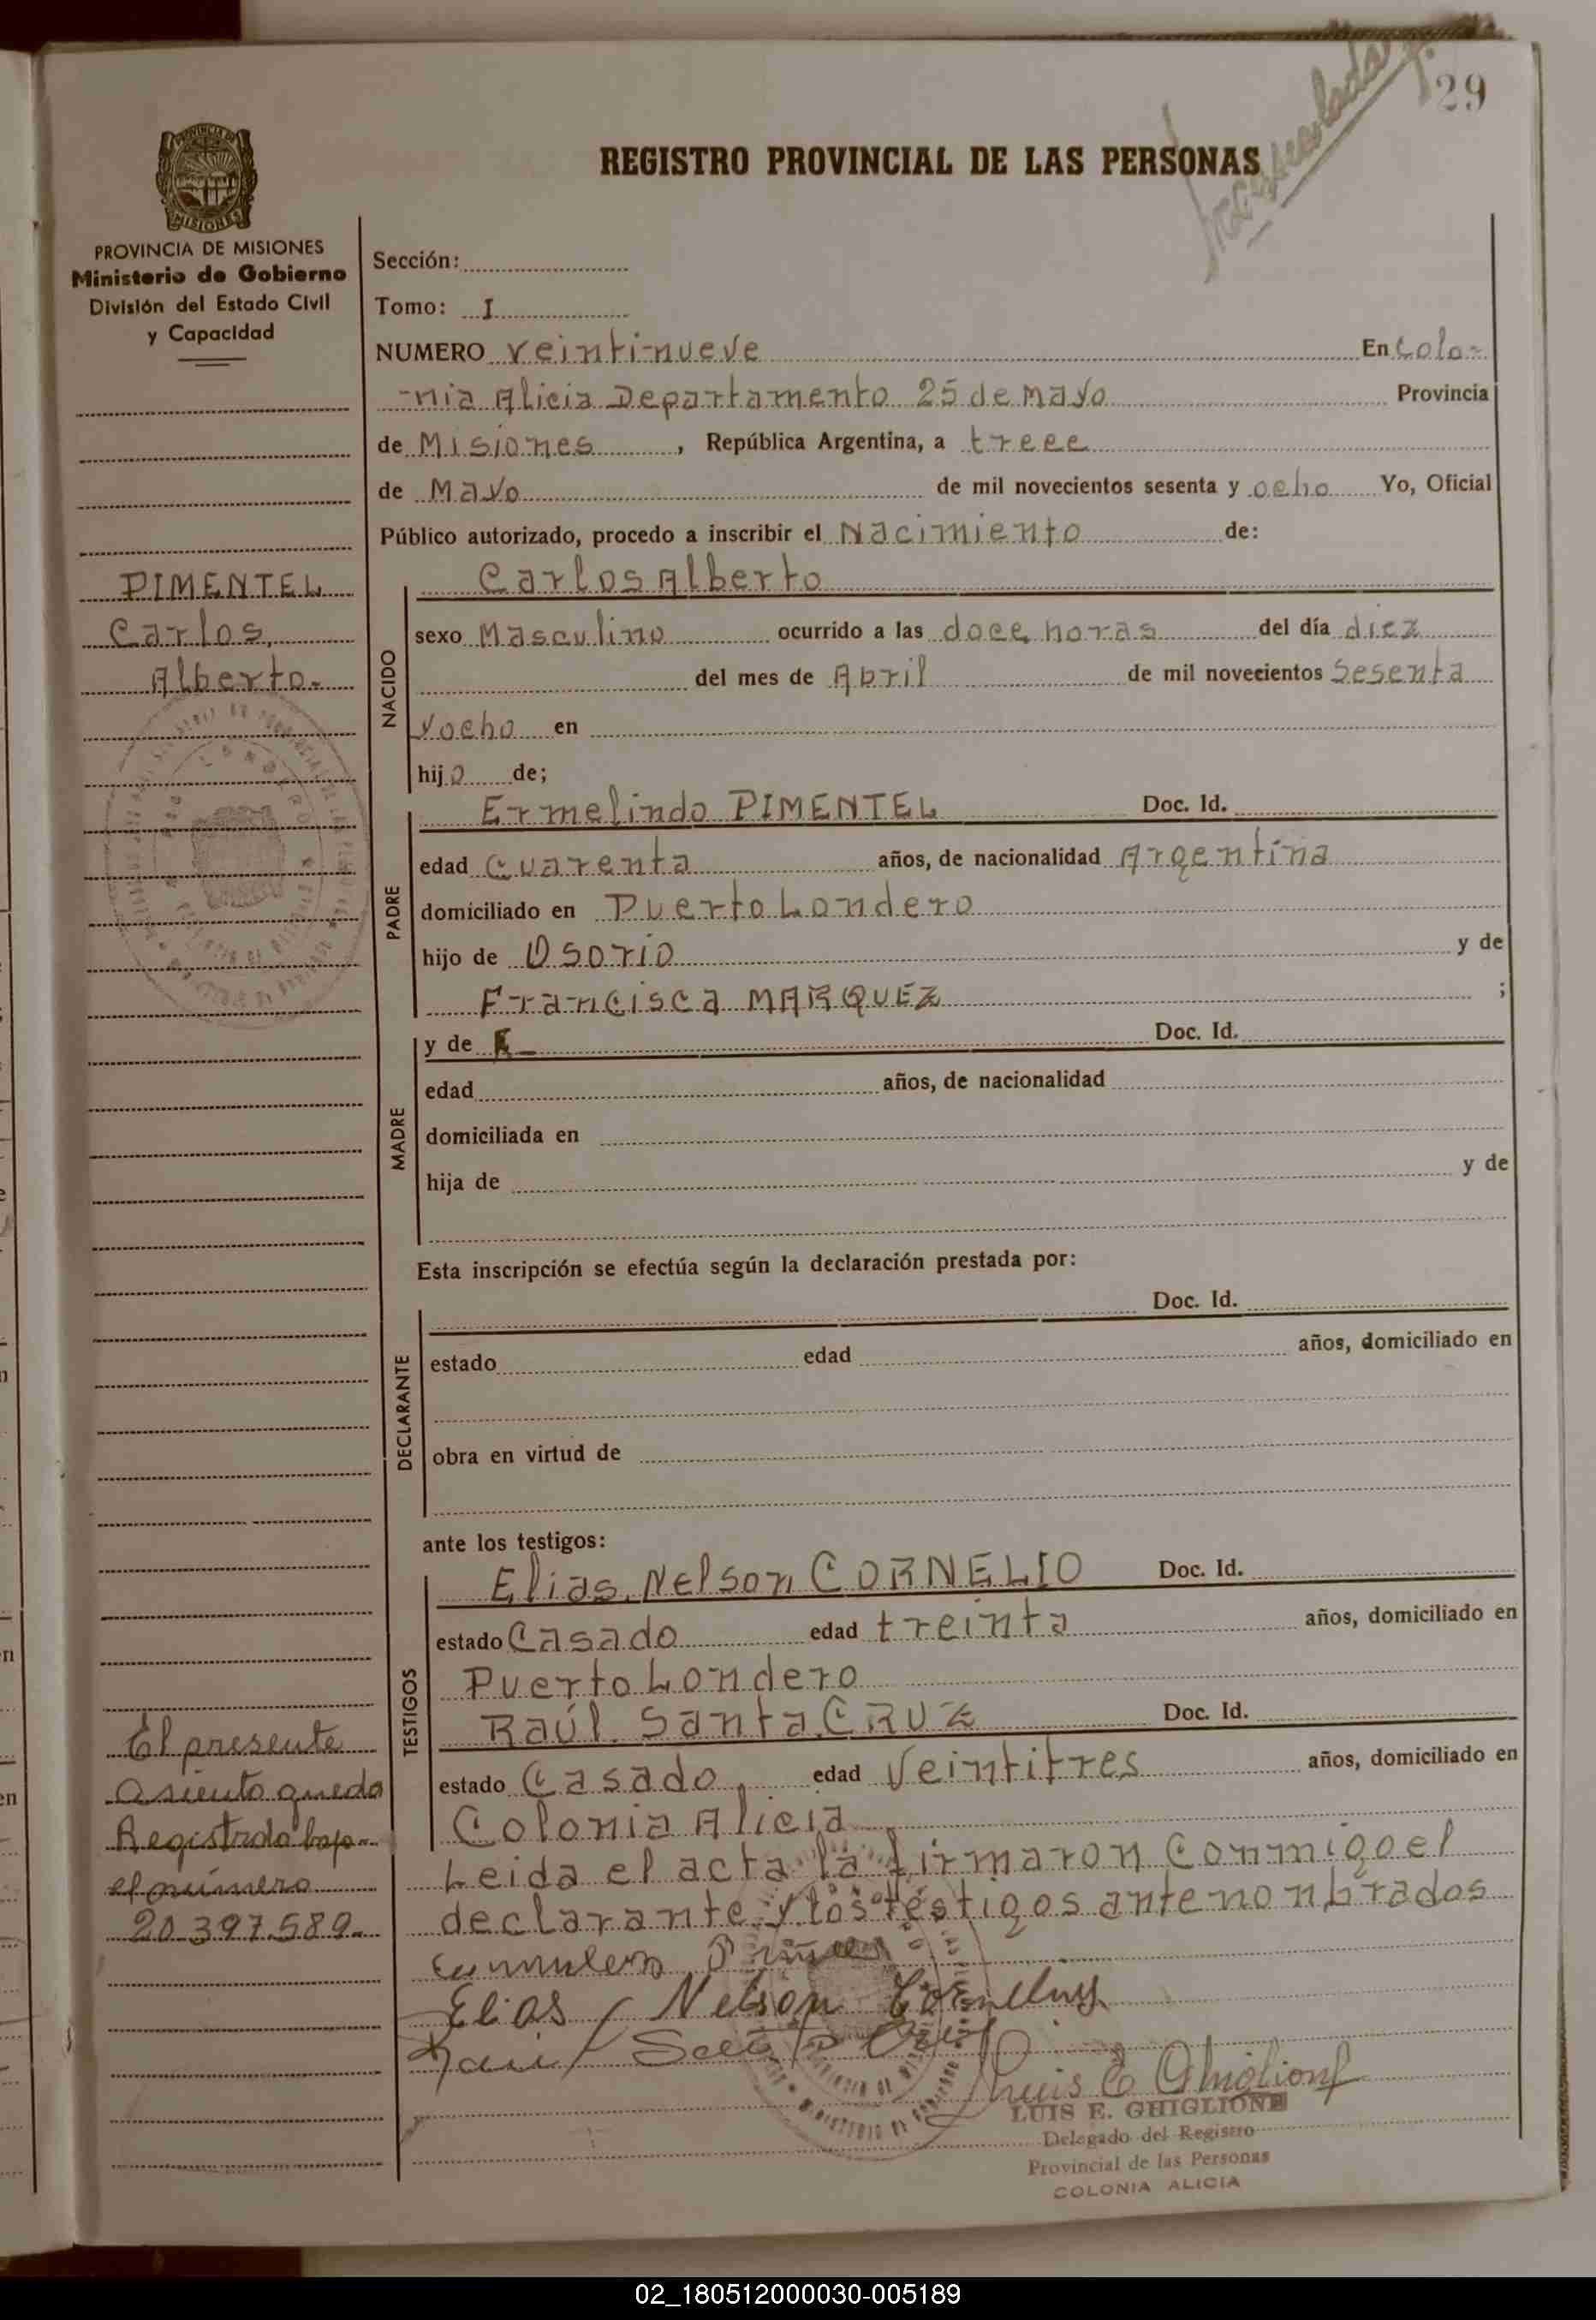 29
REGISTRO PROVINCIAL DE LAS PERSONAS
PROVINCIA DE MISIONES
Ministerio de Gobierno
División del Estado Civil
y Capacidad
Sección:
Tomo: I
NUMERO veinti-nueve En Colo-
-nia Alicia Departamento 25 de mayo Provincia
de Misiones, República Argentina, a trece
de Mayo de mil novecientos sesenta y ocho Yo, Oficial
Público autorizado, procedo a inscribir el Nacimiento de:
PIMENTEL
Carlos
Alberto.-
NACIDO
Carlos Alberto
sexo Masculino ocurrido a las doce horas del día diez
del mes de Abril de mil novecientos Sesenta
y ocho en
hijo de;
PADRE
Ermelindo PIMENTEL Doc. Id.
edad Cuarenta años, de nacionalidad Argentina
domiciliado en Puerto Londero
hijo de Osorio y de
Francisca MARQUEZ ;
MADRE
y de Doc. Id.
edad años, de nacionalidad
domiciliada en
hija de y de
Esta inscripción se efectúa según la declaración prestada por:
DECLARANTE
Doc. Id.
estado edad años, domiciliado en
obra en virtud de
ante los testigos:
TESTIGOS
Elias Nelson CORNELIO Doc. Id.
estado Casado edad treinta años, domiciliado en
Puerto Londero
Raúl Santa CRUZ Doc. Id.
estado Casado edad Veintitres años, domiciliado en
Colonia Alicia
Leida el acta la firmaron Conmigo el
declarante y los testigos antenombrados
El presente
asiento queda
Registrado bajo
el número
20.397.589.-
Elias Nelson
Luis E Ghiglione
LUIS E. GHIGLIONE
Delegado del Registro
Provincial de las Personas
COLONIA ALICIA
02_180512000030-005189